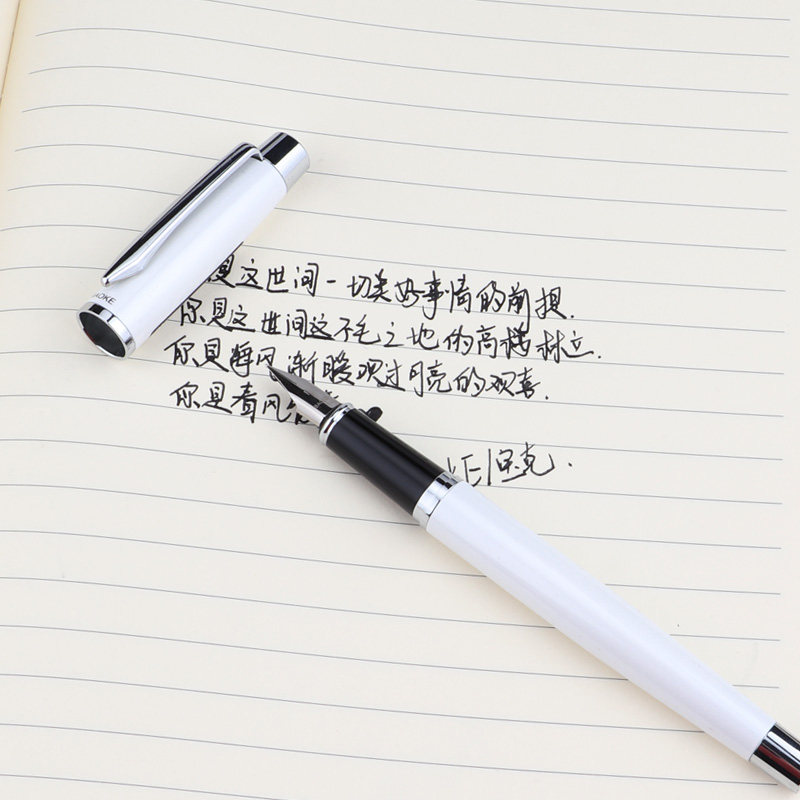 OKE
是这世间一切美好事情的前提.
你是这世间这不毛之地的高楼林立.
你是海风渐暖观过月亮的观喜.
你是春风
克.